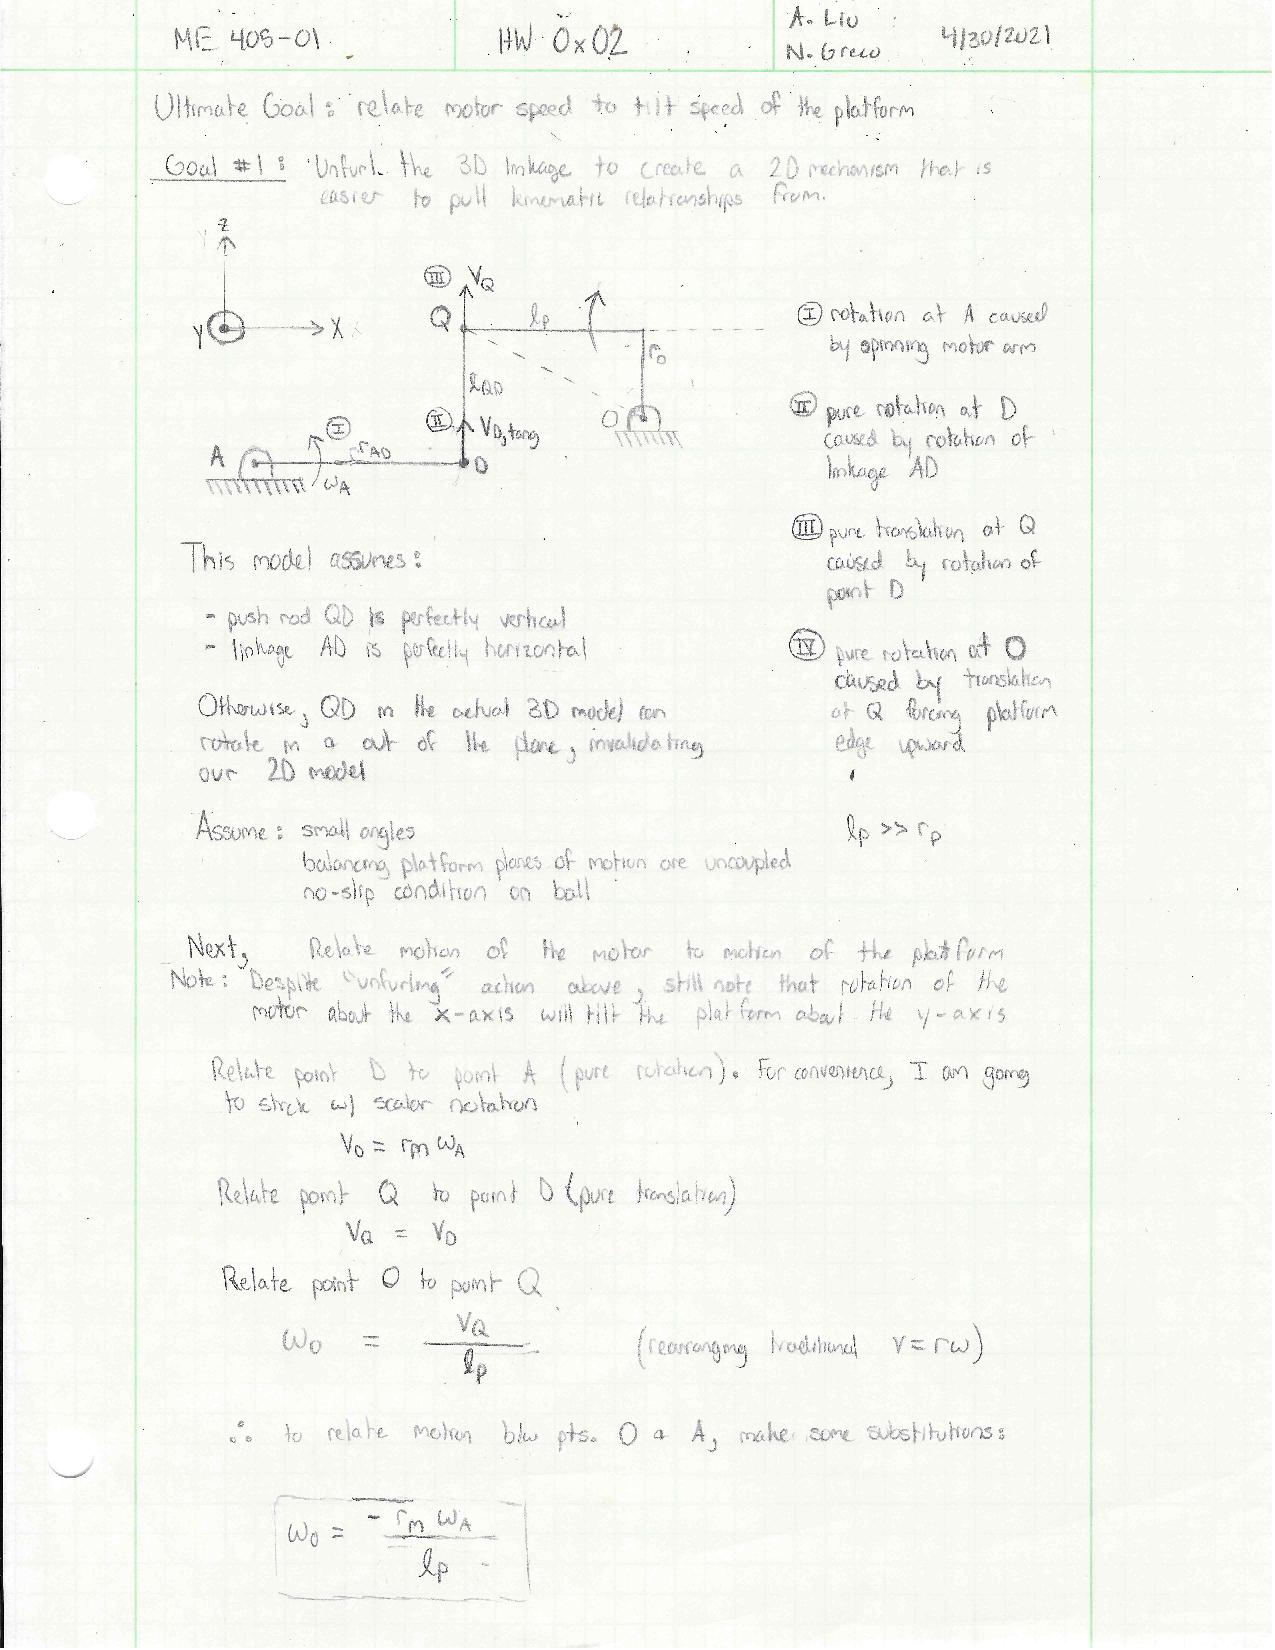 ME 405-01
HW 0x02
A. Liu
N. Greco
4/30/2021
Ultimate Goal: relate motor speed to tilt speed of the platform
Goal #1: Unfurl the 3D linkage to create a 2D mechanism that is
easier to pull kinematic relationships from.
Z
Y
X
III VQ
Q
lp
ro
lQD
II VD,tang
O
I
A
rAD
D
ωA
I rotation at A caused
by spinning motor arm
II pure rotation at D
caused by rotation of
linkage AD
III pure translation at Q
caused by rotation of
point D
IV pure rotation at O
caused by translation
at Q forcing platform
edge upward
lp >> rp
This model assumes:
- push rod QD is perfectly vertical
- linkage AD is perfectly horizontal
Otherwise, QD in the actual 3D model can
rotate in & out of the plane, invalidating
our 2D model
Assume: small angles
balancing platform planes of motion are uncoupled
no-slip condition on ball
Next, Relate motion of the motor to motion of the platform
Note: Despite "unfurling" action above, still note that rotation of the
motor about the x-axis will tilt the platform about the y-axis
Relate point D to point A (pure rotation). For convenience, I am going
to stick w/ scalar notation
VD = rm ωA
Relate point Q to point D (pure translation)
VQ = VD
Relate point O to point Q
ωO = VQ / lp (rearranging traditional v = rω)
∴ to relate motion b/w pts. O & A, make some substitutions:
ωO = - rm ωA / lp